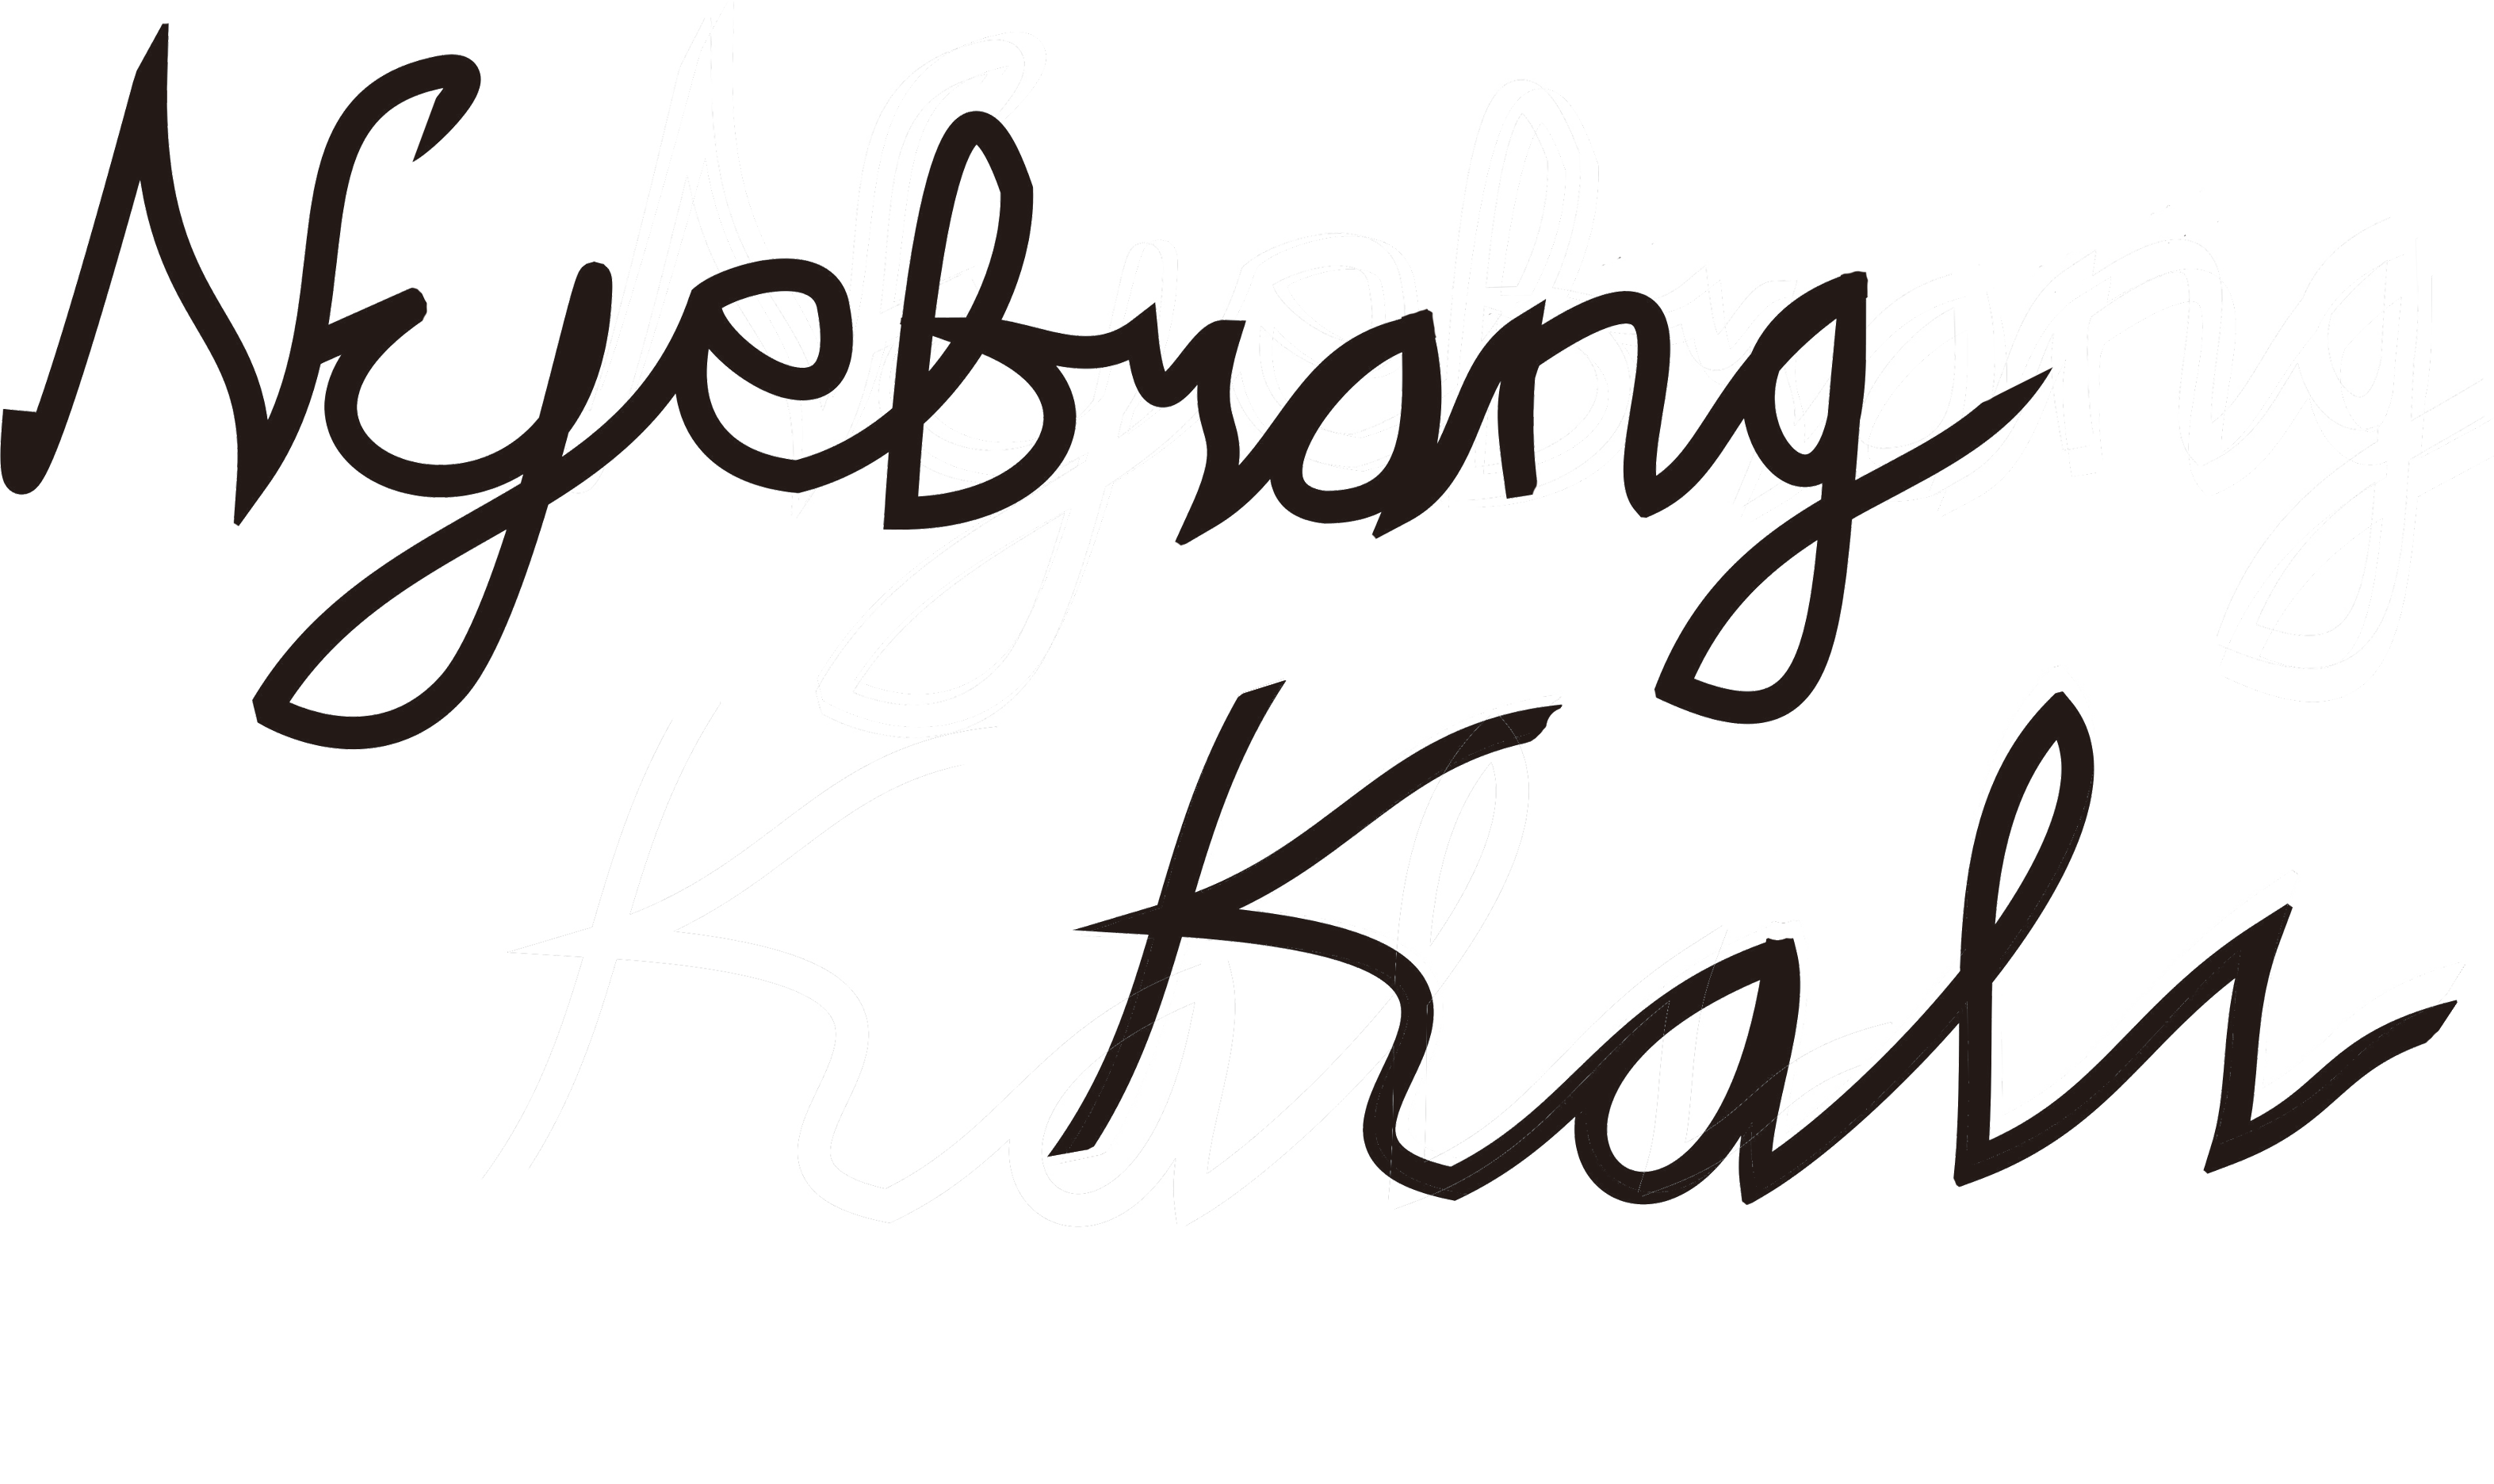 Nyebrang
Kali